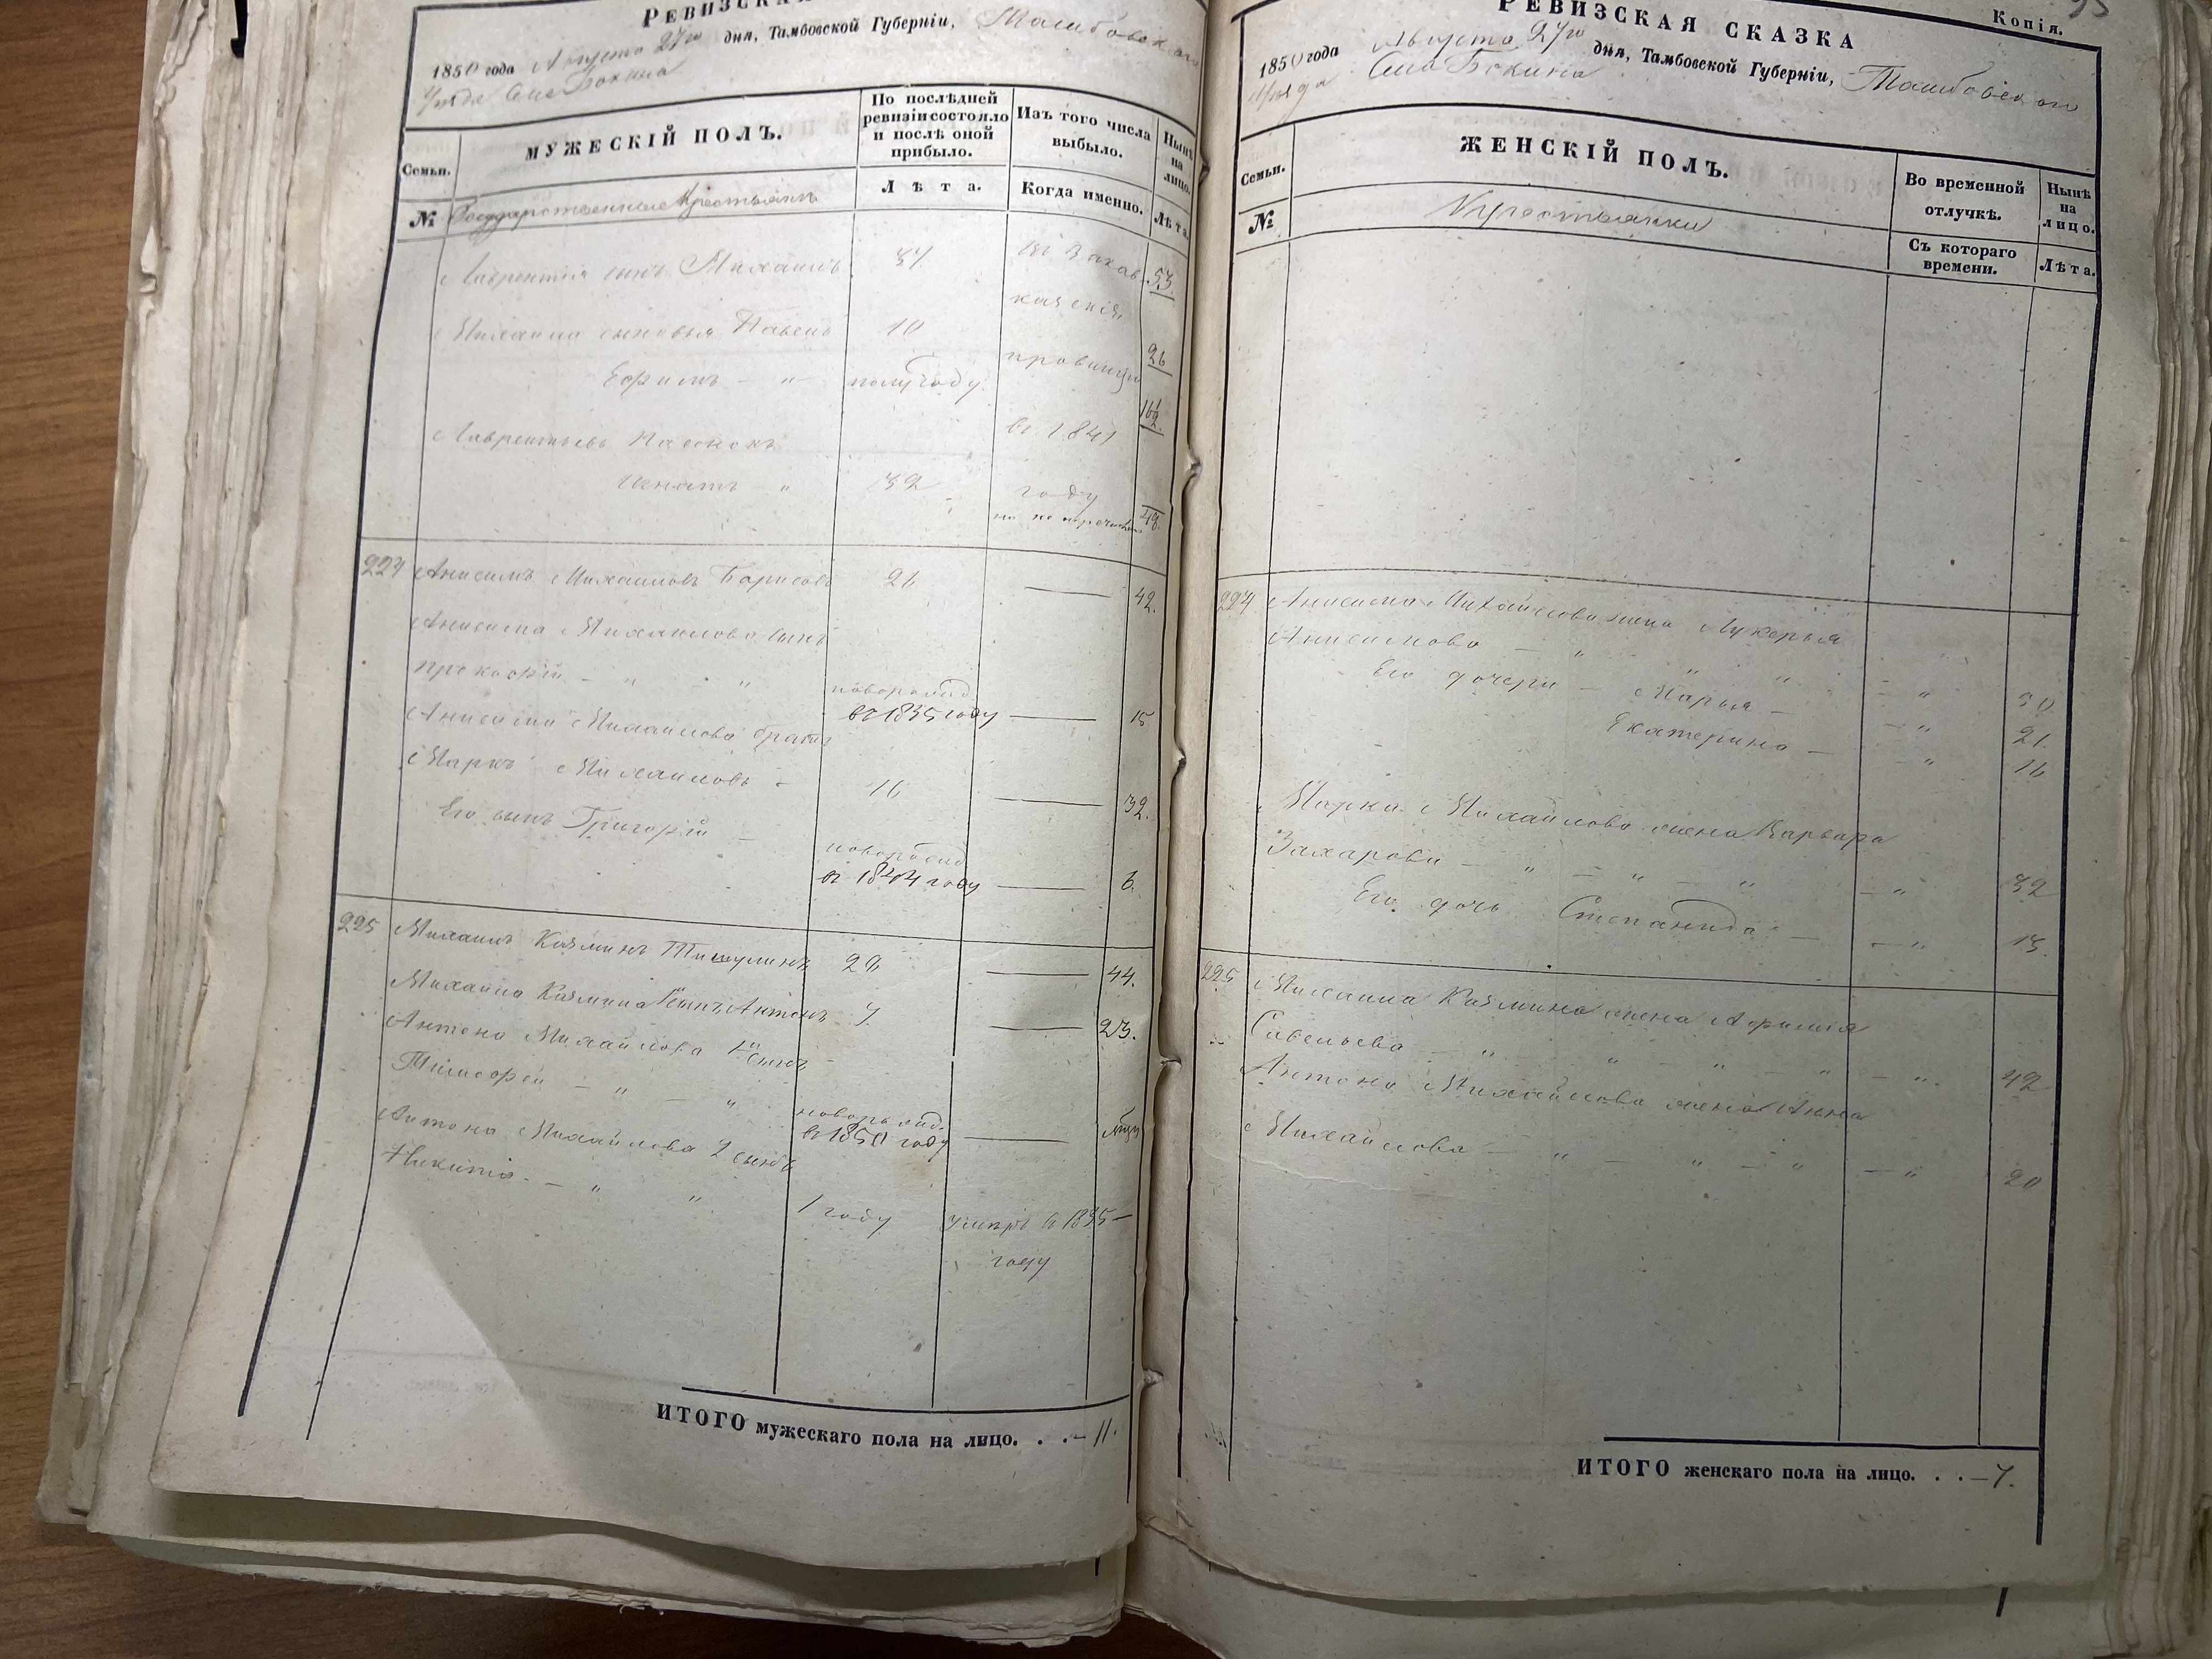 РЕВИЗСКАЯ
1850 года Августа 27го дня, Тамбовской Губерніи, Тамбовскаго
Уѣзда Села Бокина
Семьи.
МУЖЕСКІЙ ПОЛЪ.
По послѣдней ревизіи состояло и послѣ оной прибыло.
Изъ того числа выбыло.
Нынѣ на лицо.
№
Государственные Крестьяне
Лѣта.
Когда именно.
Лѣта.
Лаврентія сынъ Михаилъ 37 53.
въ Закав
казскія
Михаила сыновья Павелъ 10 26
провинціи
Ефимъ — " — полугоду 16½
въ 1841
Лаврентьевъ пасонокъ
Игнатъ — " 32 48.
году
224 Анисимъ Михаиловъ Борисовъ 26 — 42.
Анисима Михаилова сынъ
Прокофій — " — " новорожд.
въ 1835 году — 15
Анисима Михаилова братъ
Маркъ Михаиловъ — 16 — 32.
Его сынъ Григорій — новорожд.
въ 1844 году — 6.
225 Михаилъ Казминъ 28 — 44.
Михаила Казмина сынъ Антонъ 7. — 23.
Антона Михайлова 1й сынъ
Тимофей — " — " новорожд.
въ 1850 году —
Антона Михайлова 2 сынъ
Никита — " " 1 году умеръ в 1835 —
году
ИТОГО мужескаго пола на лицо. . . — 11.
Копія.
РЕВИЗСКАЯ СКАЗКА
1850 года Августа 27го дня, Тамбовской Губерніи, Тамбовскаго
Уѣзда Села Бокина
Семьи.
ЖЕНСКІЙ ПОЛЪ.
Во временной отлучкѣ.
Нынѣ на лицо.
№
Крестьянки
Съ котораго времени.
Лѣта.
224 Анисима Михайлова жена Лукерья
Анисимова — " " " — " 50
Его дочери — Марья — — " 21.
Екатерина — " 16
Марка Михайлова жена Варвара
Захарова — " — " — " — " 32
Его дочь Степанида — — " 13.
225 Михаила Казмина жена Афимія
Савельева — " " — " — " — ". 42
Антона Михайлова жена Анна
Михайлова — " — " — " — " 20
ИТОГО женскаго пола на лицо. . . — 7.